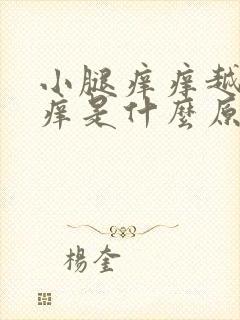 小腿痒痒越
痒是什麼原
楊奎